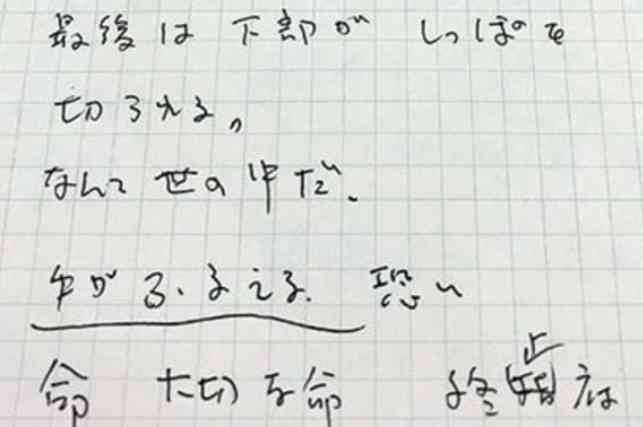 最後は下部が しっぽを
切られる。
なんて世の中だ、
手がふるえる。 恐い
命 大切な命 終止